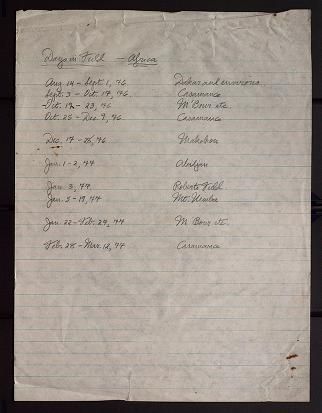 Days in Field — Africa
Aug. 14 - Sept. 1, 46 Dakar and environs
Sept. 3 - Oct. 17, 46. Casamance
Oct. 19 - 23, 46 M'Bour etc.
Oct. 25 - Dec. 9, 46 Casamance
Dec. 17 - 26, 46
Jan. 1 - 2, 47 Abidjan
Jan. 3, 47 Roberts Field
Jan. 5 - 19, 47 Mt. Nimba
Jan. 22 - Feb. 24, 47 M'Bour etc.
Feb. 28 - Mar. 12, 47 Casamance